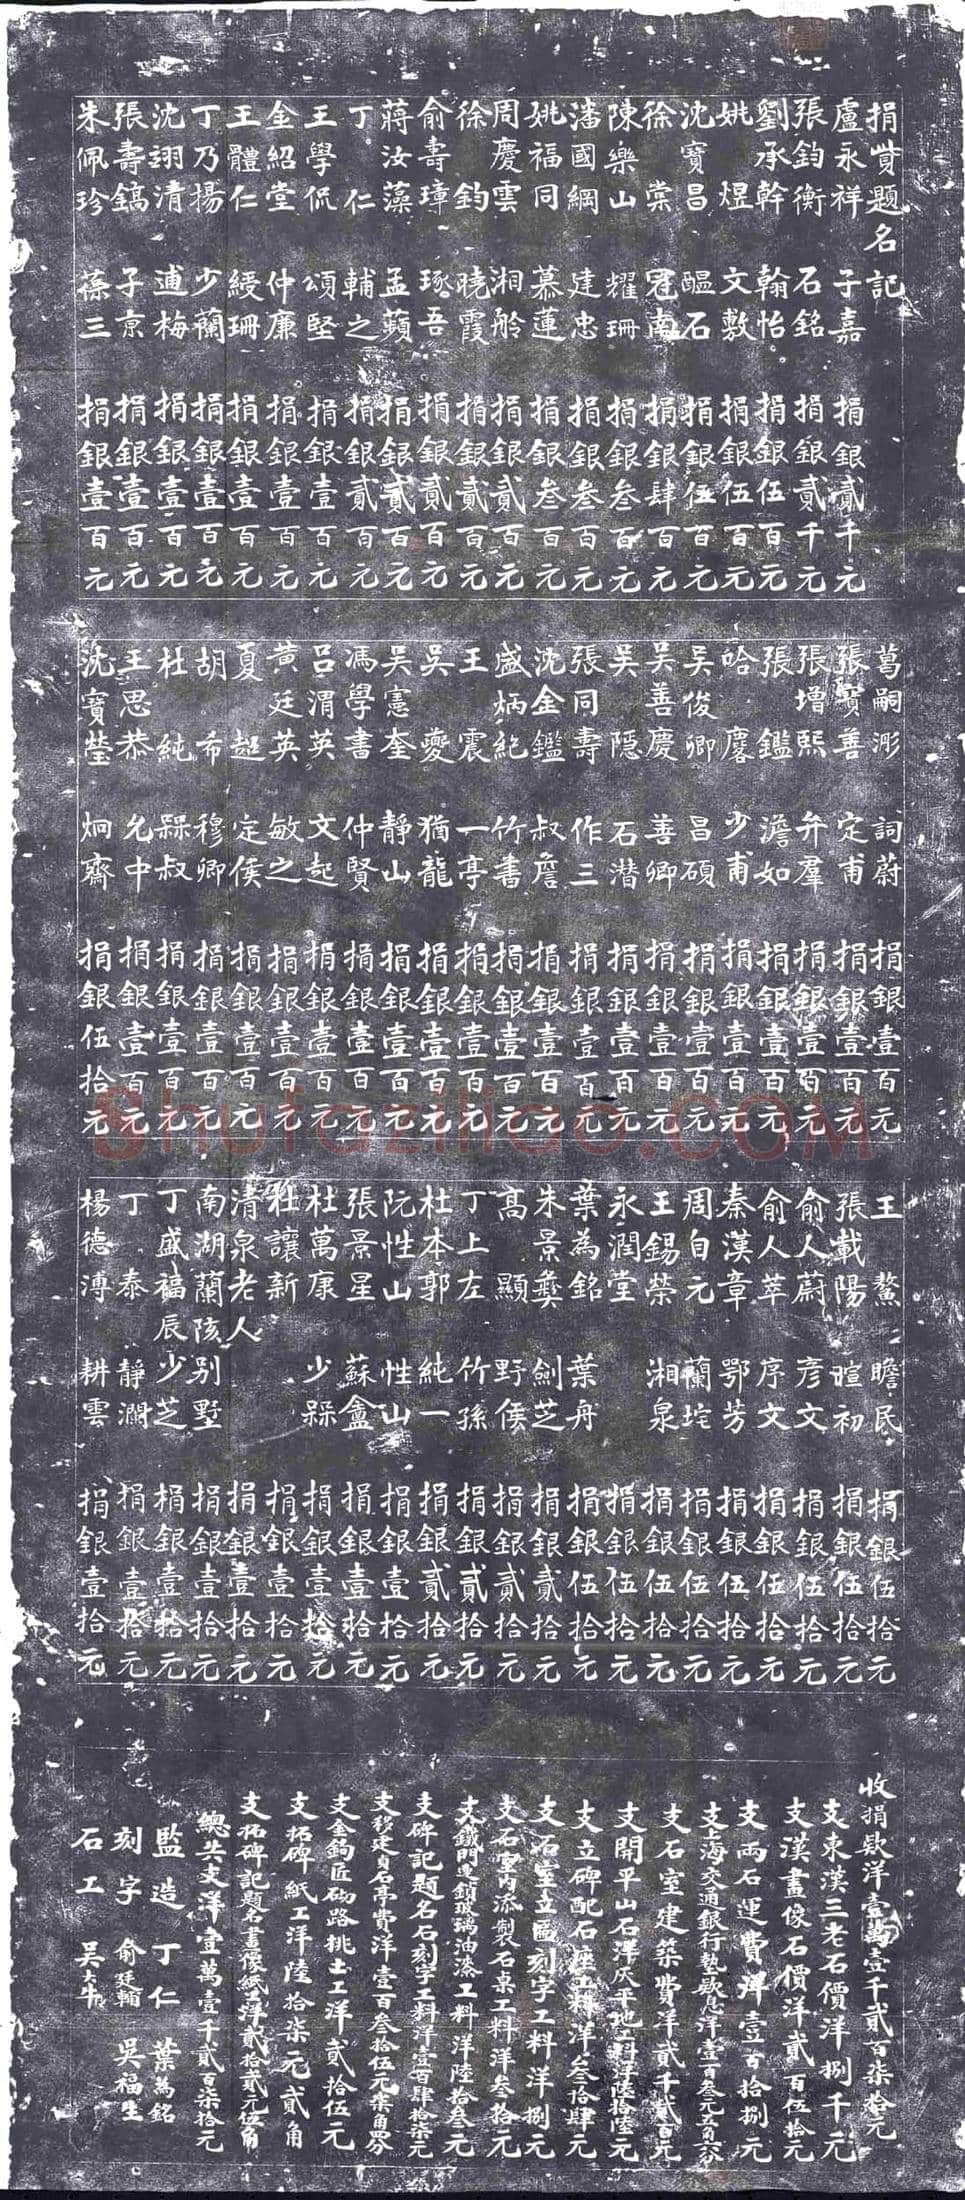 捐貲題名記
盧永祥 子嘉 捐銀貳千元
張鈞衡 石銘 捐銀貳千元
劉承幹 翰怡 捐銀伍百元
姚煜 文敷 捐銀伍百元
沈寶昌 醞石 捐銀伍百元
徐棠 冠南 捐銀肆百元
陳樂山 耀珊 捐銀叁百元
潘國綱 建忠 捐銀叁百元
姚福同 慕蓮 捐銀叁百元
周慶雲 湘舲 捐銀貳百元
徐鈞 曉霞 捐銀貳百元
俞壽璋 琢吾 捐銀貳百元
蔣汝藻 孟蘋 捐銀貳百元
丁仁 輔之 捐銀貳百元
王學侃 頌堅 捐銀壹百元
金紹堂 仲廉 捐銀壹百元
王體仁 綬珊 捐銀壹百元
丁乃揚 少蘭 捐銀壹百元
沈翊清 逋梅 捐銀壹百元
張壽鎬 子京 捐銀壹百元
朱佩珍 葆三 捐銀壹百元
葛嗣浵 詞蔚 捐銀壹百元
張寶善 定甫 捐銀壹百元
張增熙 弁羣 捐銀壹百元
張鑑 澹如 捐銀壹百元
哈麐 少甫 捐銀壹百元
吳俊卿 昌碩 捐銀壹百元
吳善慶 善卿 捐銀壹百元
吳隱 石潛 捐銀壹百元
張同壽 作三 捐銀壹百元
沈金鑑 叔詹 捐銀壹百元
盛炳紀 竹書 捐銀壹百元
王震 一亭 捐銀壹百元
吳夔 猶龍 捐銀壹百元
吳憲奎 靜山 捐銀壹百元
馮學書 仲賢 捐銀壹百元
呂渭英 文起 捐銀壹百元
黃廷英 敏之 捐銀壹百元
夏超 定侯 捐銀壹百元
胡希 穆卿 捐銀壹百元
杜純 槑叔 捐銀壹百元
王思恭 允中 捐銀壹百元
沈寶瑩 炯齋 捐銀伍拾元
王鰲 瞻民 捐銀伍拾元
張載陽 暄初 捐銀伍拾元
俞人蔚 彥文 捐銀伍拾元
俞人萃 序文 捐銀伍拾元
秦漢章 鄂芳 捐銀伍拾元
周自元 蘭垞 捐銀伍拾元
王錫榮 湘泉 捐銀伍拾元
永潤堂 捐銀伍拾元
葉為銘 葉舟 捐銀伍拾元
朱景彝 劍芝 捐銀貳拾元
高顯 野侯 捐銀貳拾元
丁上左 竹孫 捐銀貳拾元
杜本郭 純一 捐銀貳拾元
阮性山 性山 捐銀壹拾元
張景星 蘇盦 捐銀壹拾元
杜萬康 少槑 捐銀壹拾元
杜讓新 捐銀壹拾元
清泉老人 捐銀壹拾元
南湖蘭陔別墅 捐銀壹拾元
丁盛福辰 少芝 捐銀壹拾元
丁泰 靜瀾 捐銀壹拾元
楊德溥 耕雲 捐銀壹拾元
收捐欵洋壹萬壹千貳百柒拾元
支東漢三老石價洋捌千元
支漢畫像石價洋貳百伍拾元
支兩石運費洋壹百拾捌元
支上海交通銀行墊欵息洋壹百叁元五角六分
支石室建築費洋貳千貳百元
支開平山石洋灰平地工料洋陸拾陸元
支立碑配石座工料洋叁拾肆元
支石室立匾刻字工料洋捌元
支石室內添製石桌工料洋叁拾元
支鐵門連鎖玻璃油漆工料洋陸拾叁元
支碑記題名石刻字工料洋壹百肆拾柒元
支移建貞石亭費洋壹百叁拾伍元柒角四分
支金鉤匠砌路挑土工洋貳拾伍元
支拓碑紙工洋陸拾柒元貳角
支拓碑記題名畫像紙工洋貳拾貳元伍角
總共支洋壹萬壹千貳百柒拾元
監造 丁仁 葉為銘
刻字 俞廷輔 吳福生
石工 吳大牛
Shufaziliao.COM